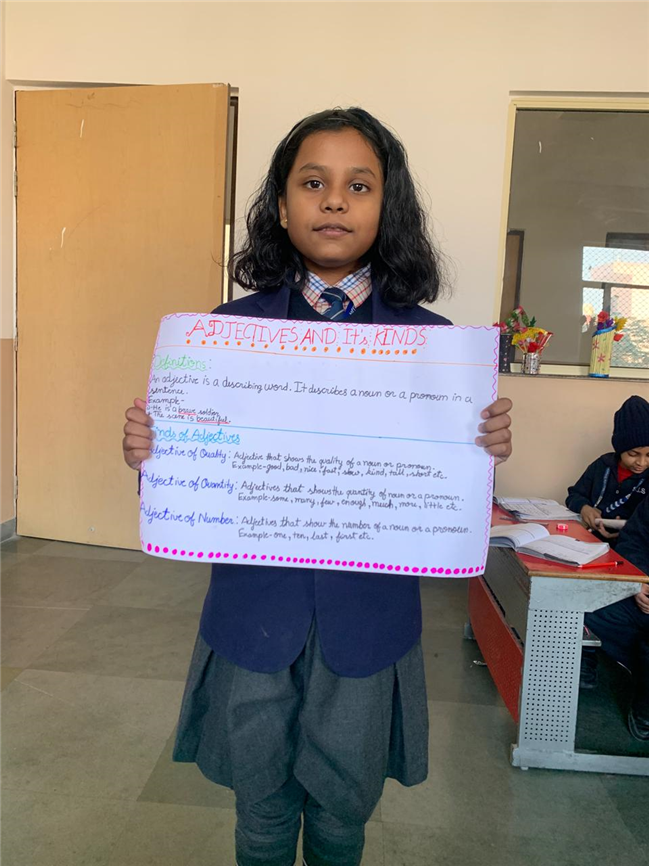 ADJECTIVES AND It's KINDS
Definition:
An adjective is a describing word. It describes a noun or a pronoun in a
sentence.
Example-
He is a brave soldier.
The scene is beautiful.
Kinds of Adjectives
Adjective of Quality: Adjective that shows the quality of a noun or pronoun.
Example-good, bad, nice, fast, slow, kind, tall, short etc.
Adjective of Quantity: Adjectives that shows the quantity of noun or a pronoun.
Example-some, many, few, enough, much, more, little etc.
Adjective of Number: Adjectives that show the number of a noun or a pronoun.
Example-one, ten, last, first etc.